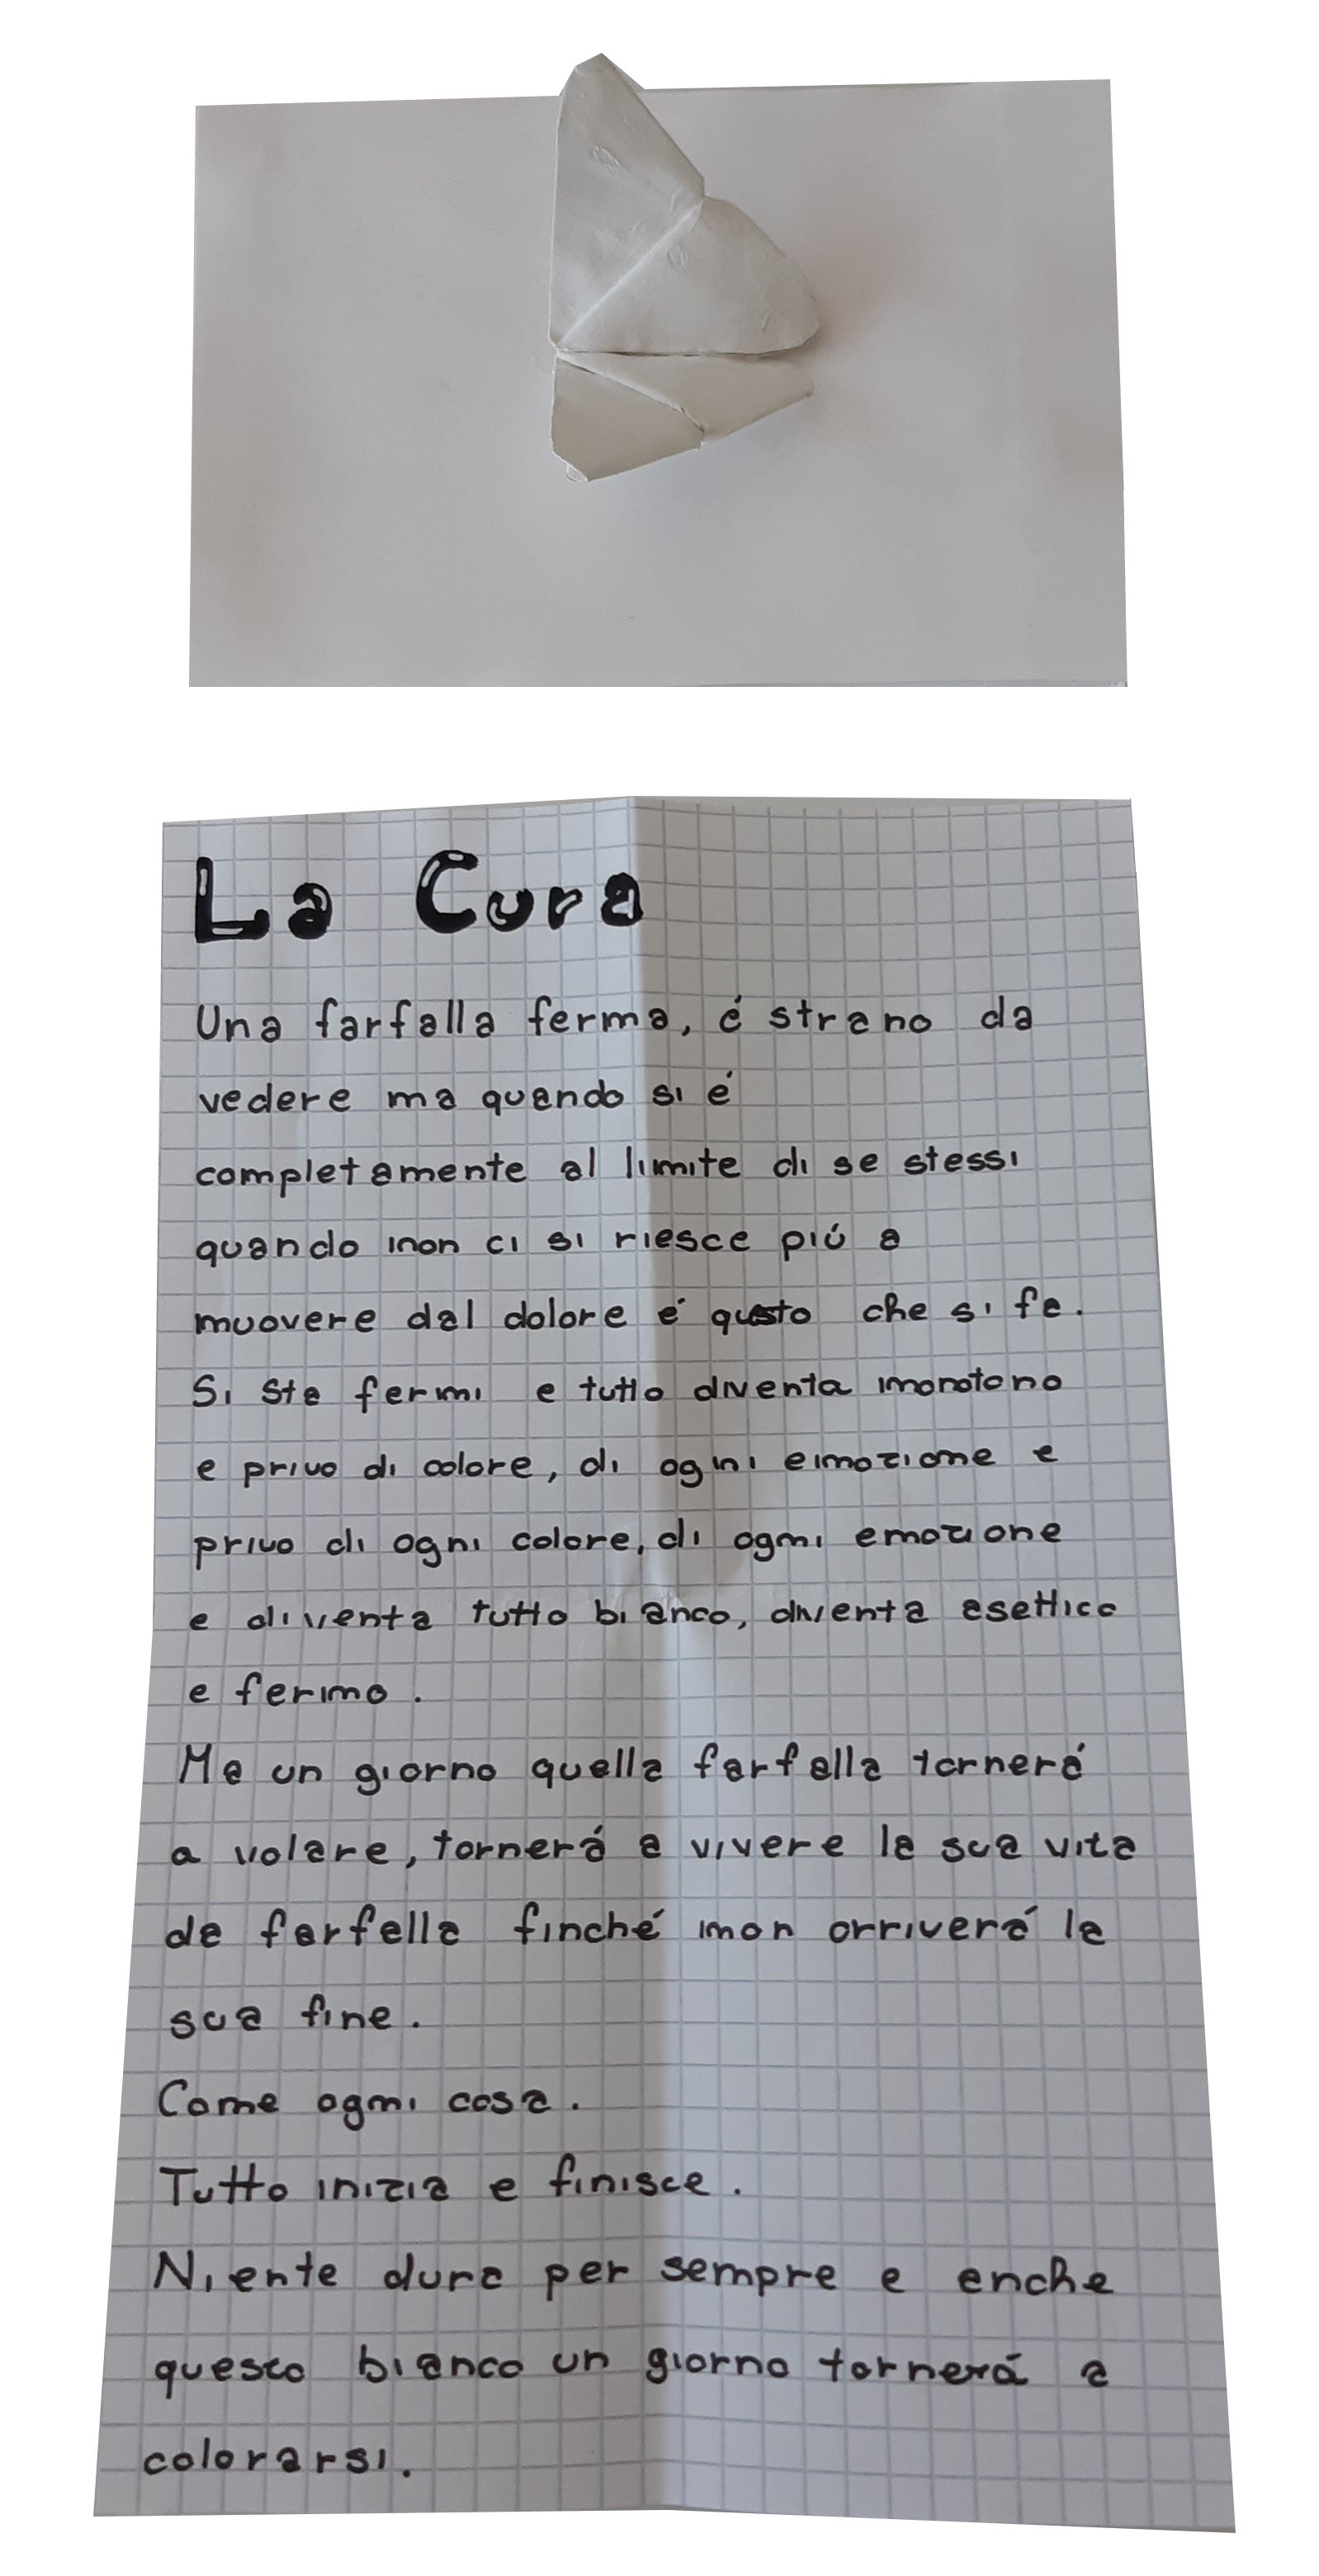 La Cura
Una farfalla ferma, é strano da
vedere ma quando si é
completamente al limite di se stessi
quando non ci si riesce piú a
muovere dal dolore é questo che si fa.
Si sta fermi e tutto diventa monotono
e privo di colore, di ogni emozione e
privo di ogni colore, di ogni emozione
e diventa tutto bianco, diventa asettico
e fermo.
Ma un giorno quella farfalla tornerá
a volare, tornerá a vivere la sua vita
da farfalla finché non arriverá la
sua fine.
Come ogni cosa.
Tutto inizia e finisce.
Niente dura per sempre e anche
questo bianco un giorno tornerá a
colorarsi.